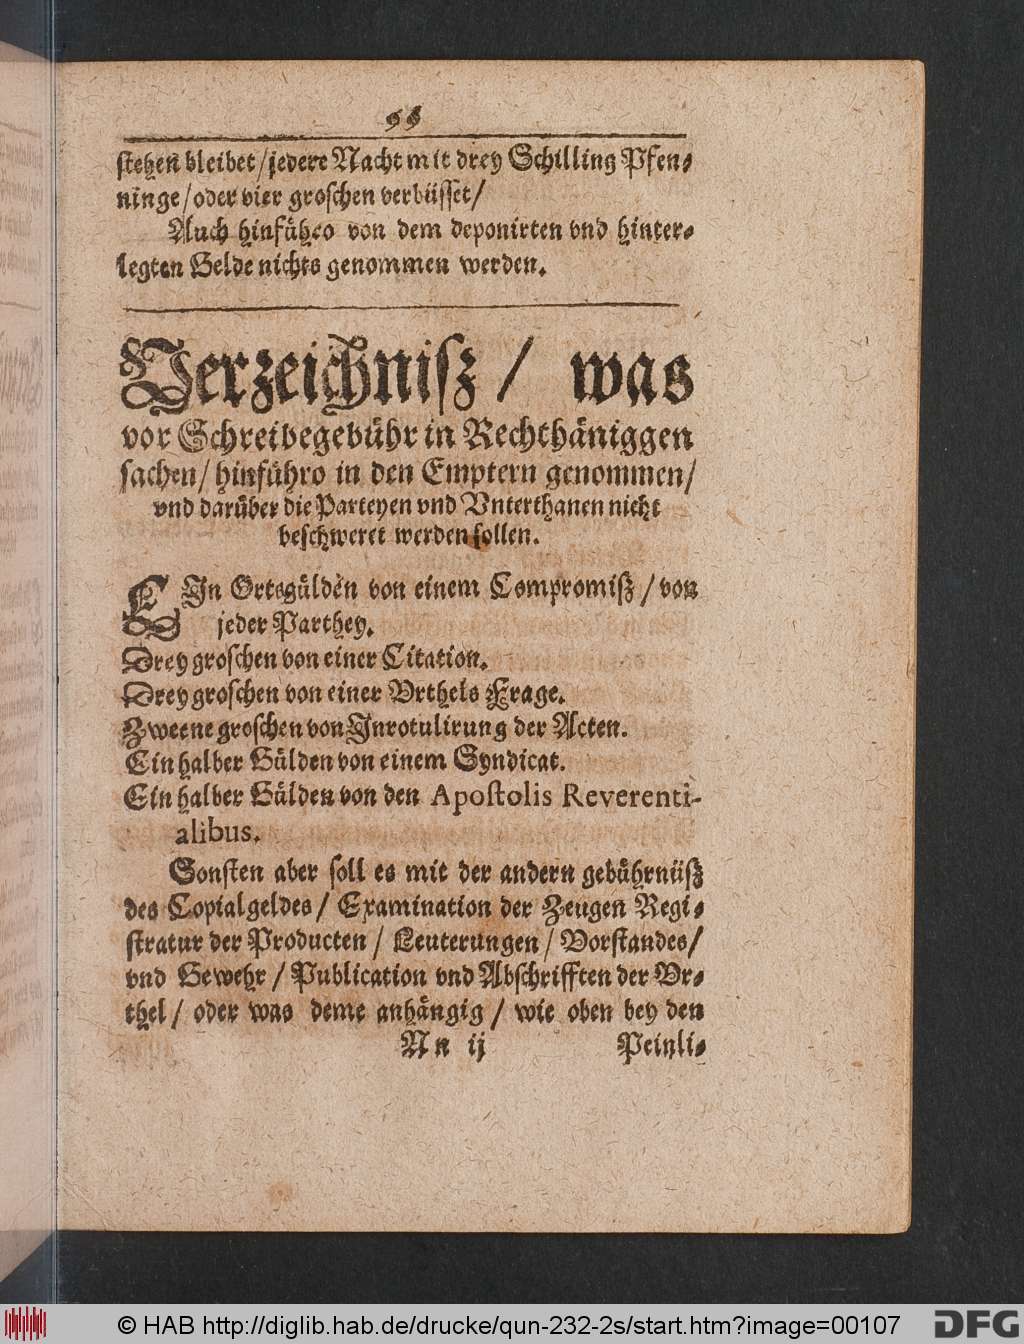 99
stehen bleibet/jedere Nacht mit drey Schilling Pfen-
ninge/oder vier groschen verbüsset/
Auch hinführo von dem deponirten vnd hinter-
legten Gelde nichts genommen werden.
Verzeichnisz / was
vor Schreibegebühr in Rechthäniggen
sachen/ hinführo in den Emptern genommen/
vnd darüber die Parteyen vnd Vnterthanen nicht
beschweret werden sollen.
EIn Ortsgülden von einem Compromiß / von
jeder Parthey.
Drey groschen von einer Citation.
Drey groschen von einer Vrthels Frage.
Zweene groschen von Inrotulirung der Acten.
Ein halber Gülden von einem Syndicat.
Ein halber Gülden von den Apostolis Reverenti-
alibus.
Sonsten aber soll es mit der andern gebührnüß
des Copialgeldes / Examination der Zeugen Regi-
stratur der Producten / Leuterungen / Vorstandes/
vnd Gewehr / Publication vnd Abschrifften der Vr-
thel / oder was deme anhängig / wie oben bey den
Nn ij Peinli-
© HAB http://diglib.hab.de/drucke/qun-232-2s/start.htm?image=00107
DFG